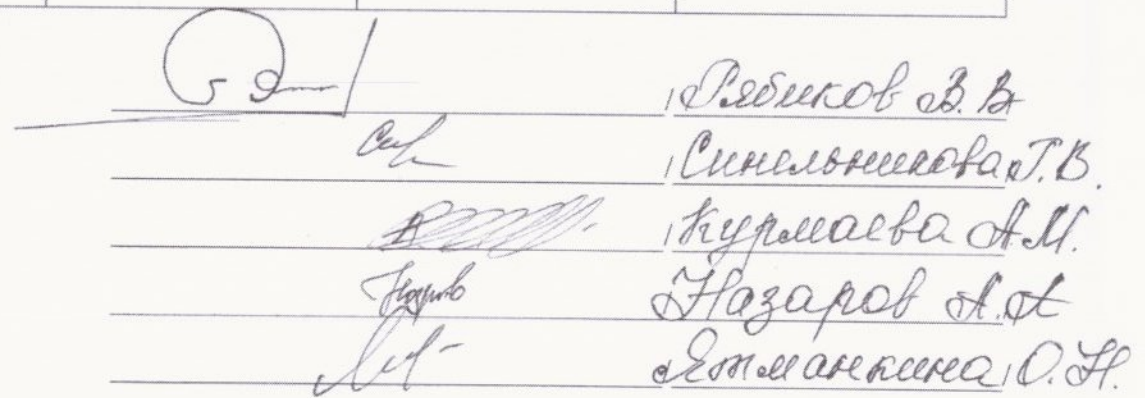 Рябиков В.В
Синельникова Т.В.
Курмаева А.М.
Назаров А.А
Ятманкина О.Н.